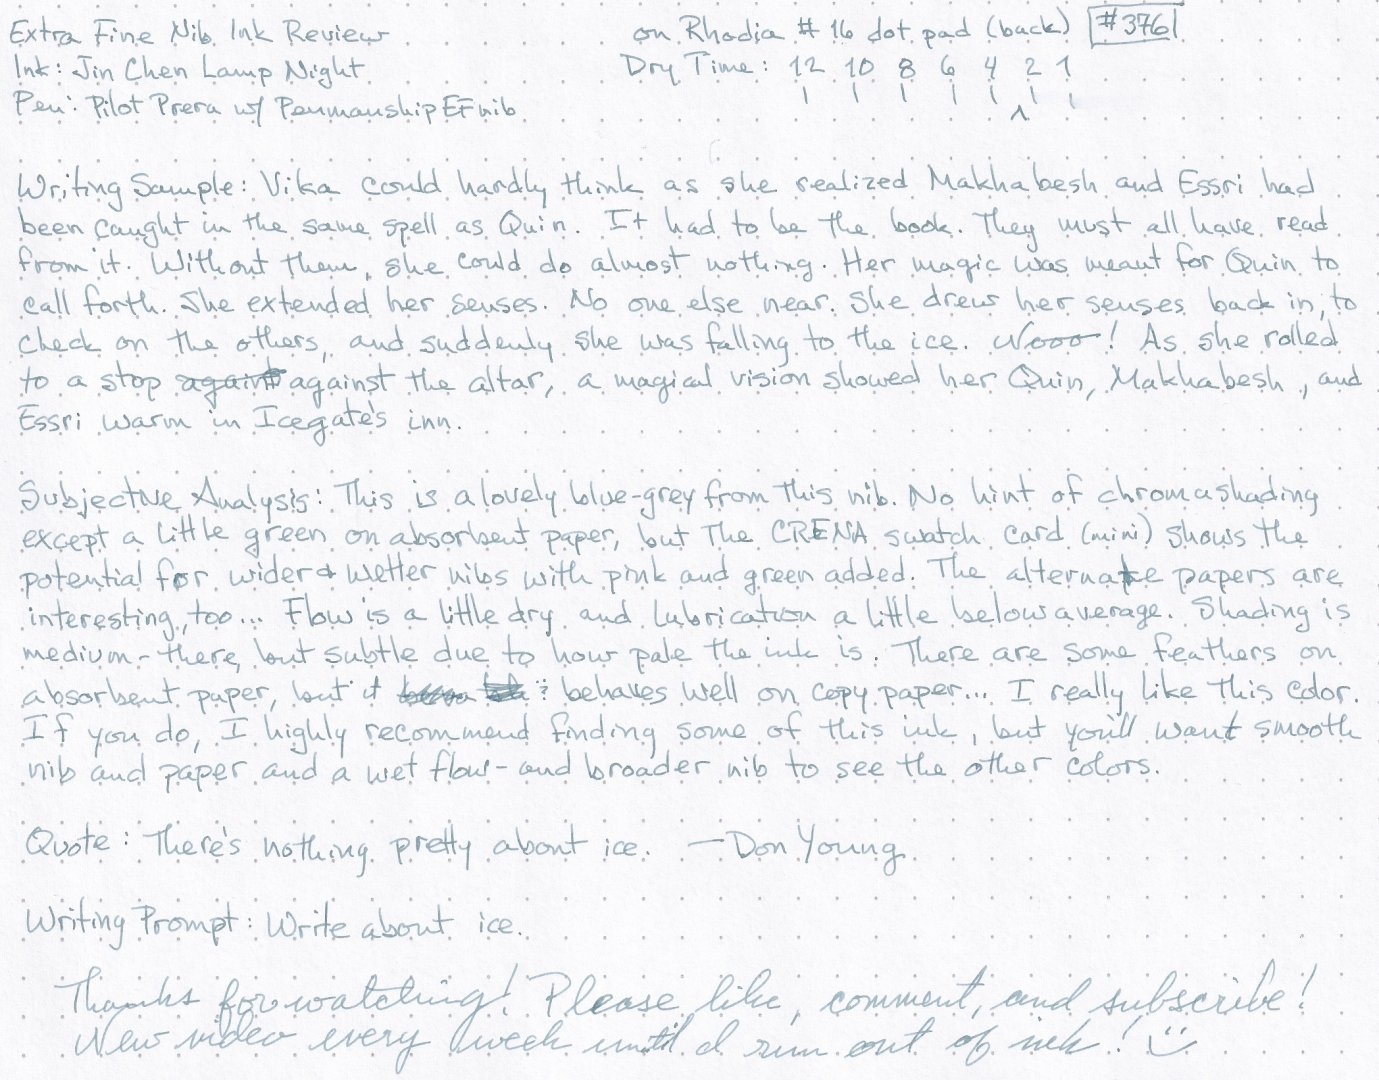 Extra Fine Nib Ink Review on Rhodia # 16 dot pad (back) #376
Ink: Jin Chen Lamp Night Dry Time: 12 10 8 6 4 2 1
Pen: Pilot Prera w/ Penmanship EF nib
Writing Sample: Vika could hardly think as she realized Makhabesh and Essri had
been caught in the same spell as Quin. It had to be the book. They must all have read
from it. Without them, she could do almost nothing. Her magic was meant for Quin to
call forth. She extended her senses. No one else near. She drew her senses back in, to
check on the others, and suddenly she was falling to the ice. Nooo! As she rolled
to a stop against the altar, a magical vision showed her Quin, Makhabesh, and
Essri warm in Icegate's inn.
Subjective Analysis: This is a lovely blue-grey from this nib. No hint of chromashading
except a little green on absorbent paper, but the CRENA swatch card (mini) shows the
potential for wider & wetter nibs with pink and green added. The alternate papers are
interesting, too... Flow is a little dry and lubrication a little below average. Shading is
medium - there, but subtle due to how pale the ink is. There are some feathers on
absorbent paper, but it behaves well on copy paper... I really like this color.
If you do, I highly recommend finding some of this ink, but you'll want smooth
nib and paper and a wet flow - and broader nib to see the other colors.
Quote: There's nothing pretty about ice. —Don Young
Writing Prompt: Write about ice.
Thanks for watching! Please like, comment, and subscribe!
New video every week until I run out of ink!